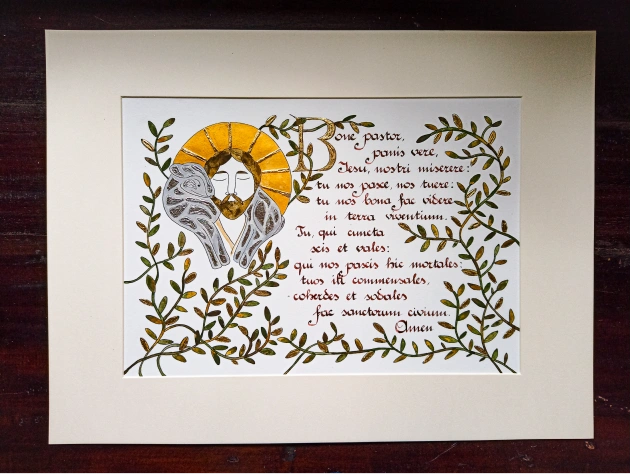 Bone pastor,
panis vere,
Iesu, nostri miserere:
tu nos pasce, nos tuere:
tu nos bona fac videre
in terra viventium.
Tu, qui cuncta
scis et vales:
qui nos pascis hic mortales:
tuos ibi commensales,
coherdes et sodales
fac sanctorum civium.
Amen